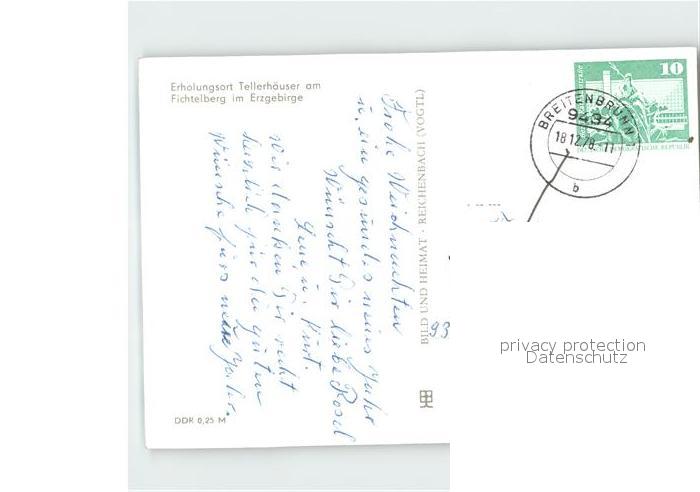 Erholungsort Tellerhäuser am
Fichtelberg im Erzgebirge
Frohe Weihnachten
u. ein gesundes neues Jahr
Wünscht Dir liebe Rosel
u. Kurt.
Wir danken Dir recht
herzlich für die guten
Wünsche fürs neue Jahr.
BILD UND HEIMAT · REICHENBACH (VOGTL)
DDR 0,25 M
10
DEMOKRATISCHE REPUBLIK
BREITENBRUNN
9434
18.12.78.-11
b
93
privacy protection
Datenschutz